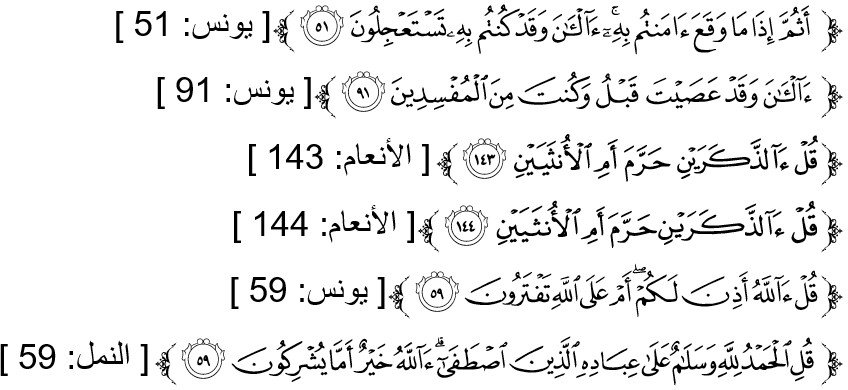 ﴿ أَثُمَّ إِذَا مَا وَقَعَ ءَامَنتُم بِهِۦٓۚ ءَآلْـَٰٔنَ وَقَدْ كُنتُم بِهِۦ تَسْتَعْجِلُونَ ٥١ ﴾[ يونس: 51 ]
﴿ ءَآلْـَٰٔنَ وَقَدْ عَصَيْتَ قَبْلُ وَكُنتَ مِنَ ٱلْمُفْسِدِينَ ٩١ ﴾[ يونس: 91 ]
﴿ قُلْ ءَآلذَّكَرَيْنِ حَرَّمَ أَمِ ٱلْأُنثَيَيْنِ ١٤٣ ﴾[ الأنعام: 143 ]
﴿ قُلْ ءَآلذَّكَرَيْنِ حَرَّمَ أَمِ ٱلْأُنثَيَيْنِ ١٤٤ ﴾[ الأنعام: 144 ]
﴿ قُلْ ءَآللَّهُ أَذِنَ لَكُمْۖ أَمْ عَلَى ٱللَّهِ تَفْتَرُونَ ٥٩ ﴾[ يونس: 59 ]
﴿ قُلِ ٱلْحَمْدُ لِلَّهِ وَسَلَٰمٌ عَلَىٰ عِبَادِهِ ٱلَّذِينَ ٱصْطَفَىٰٓۗ ءَآللَّهُ خَيْرٌ أَمَّا يُشْرِكُونَ ٥٩ ﴾[ النمل: 59 ]